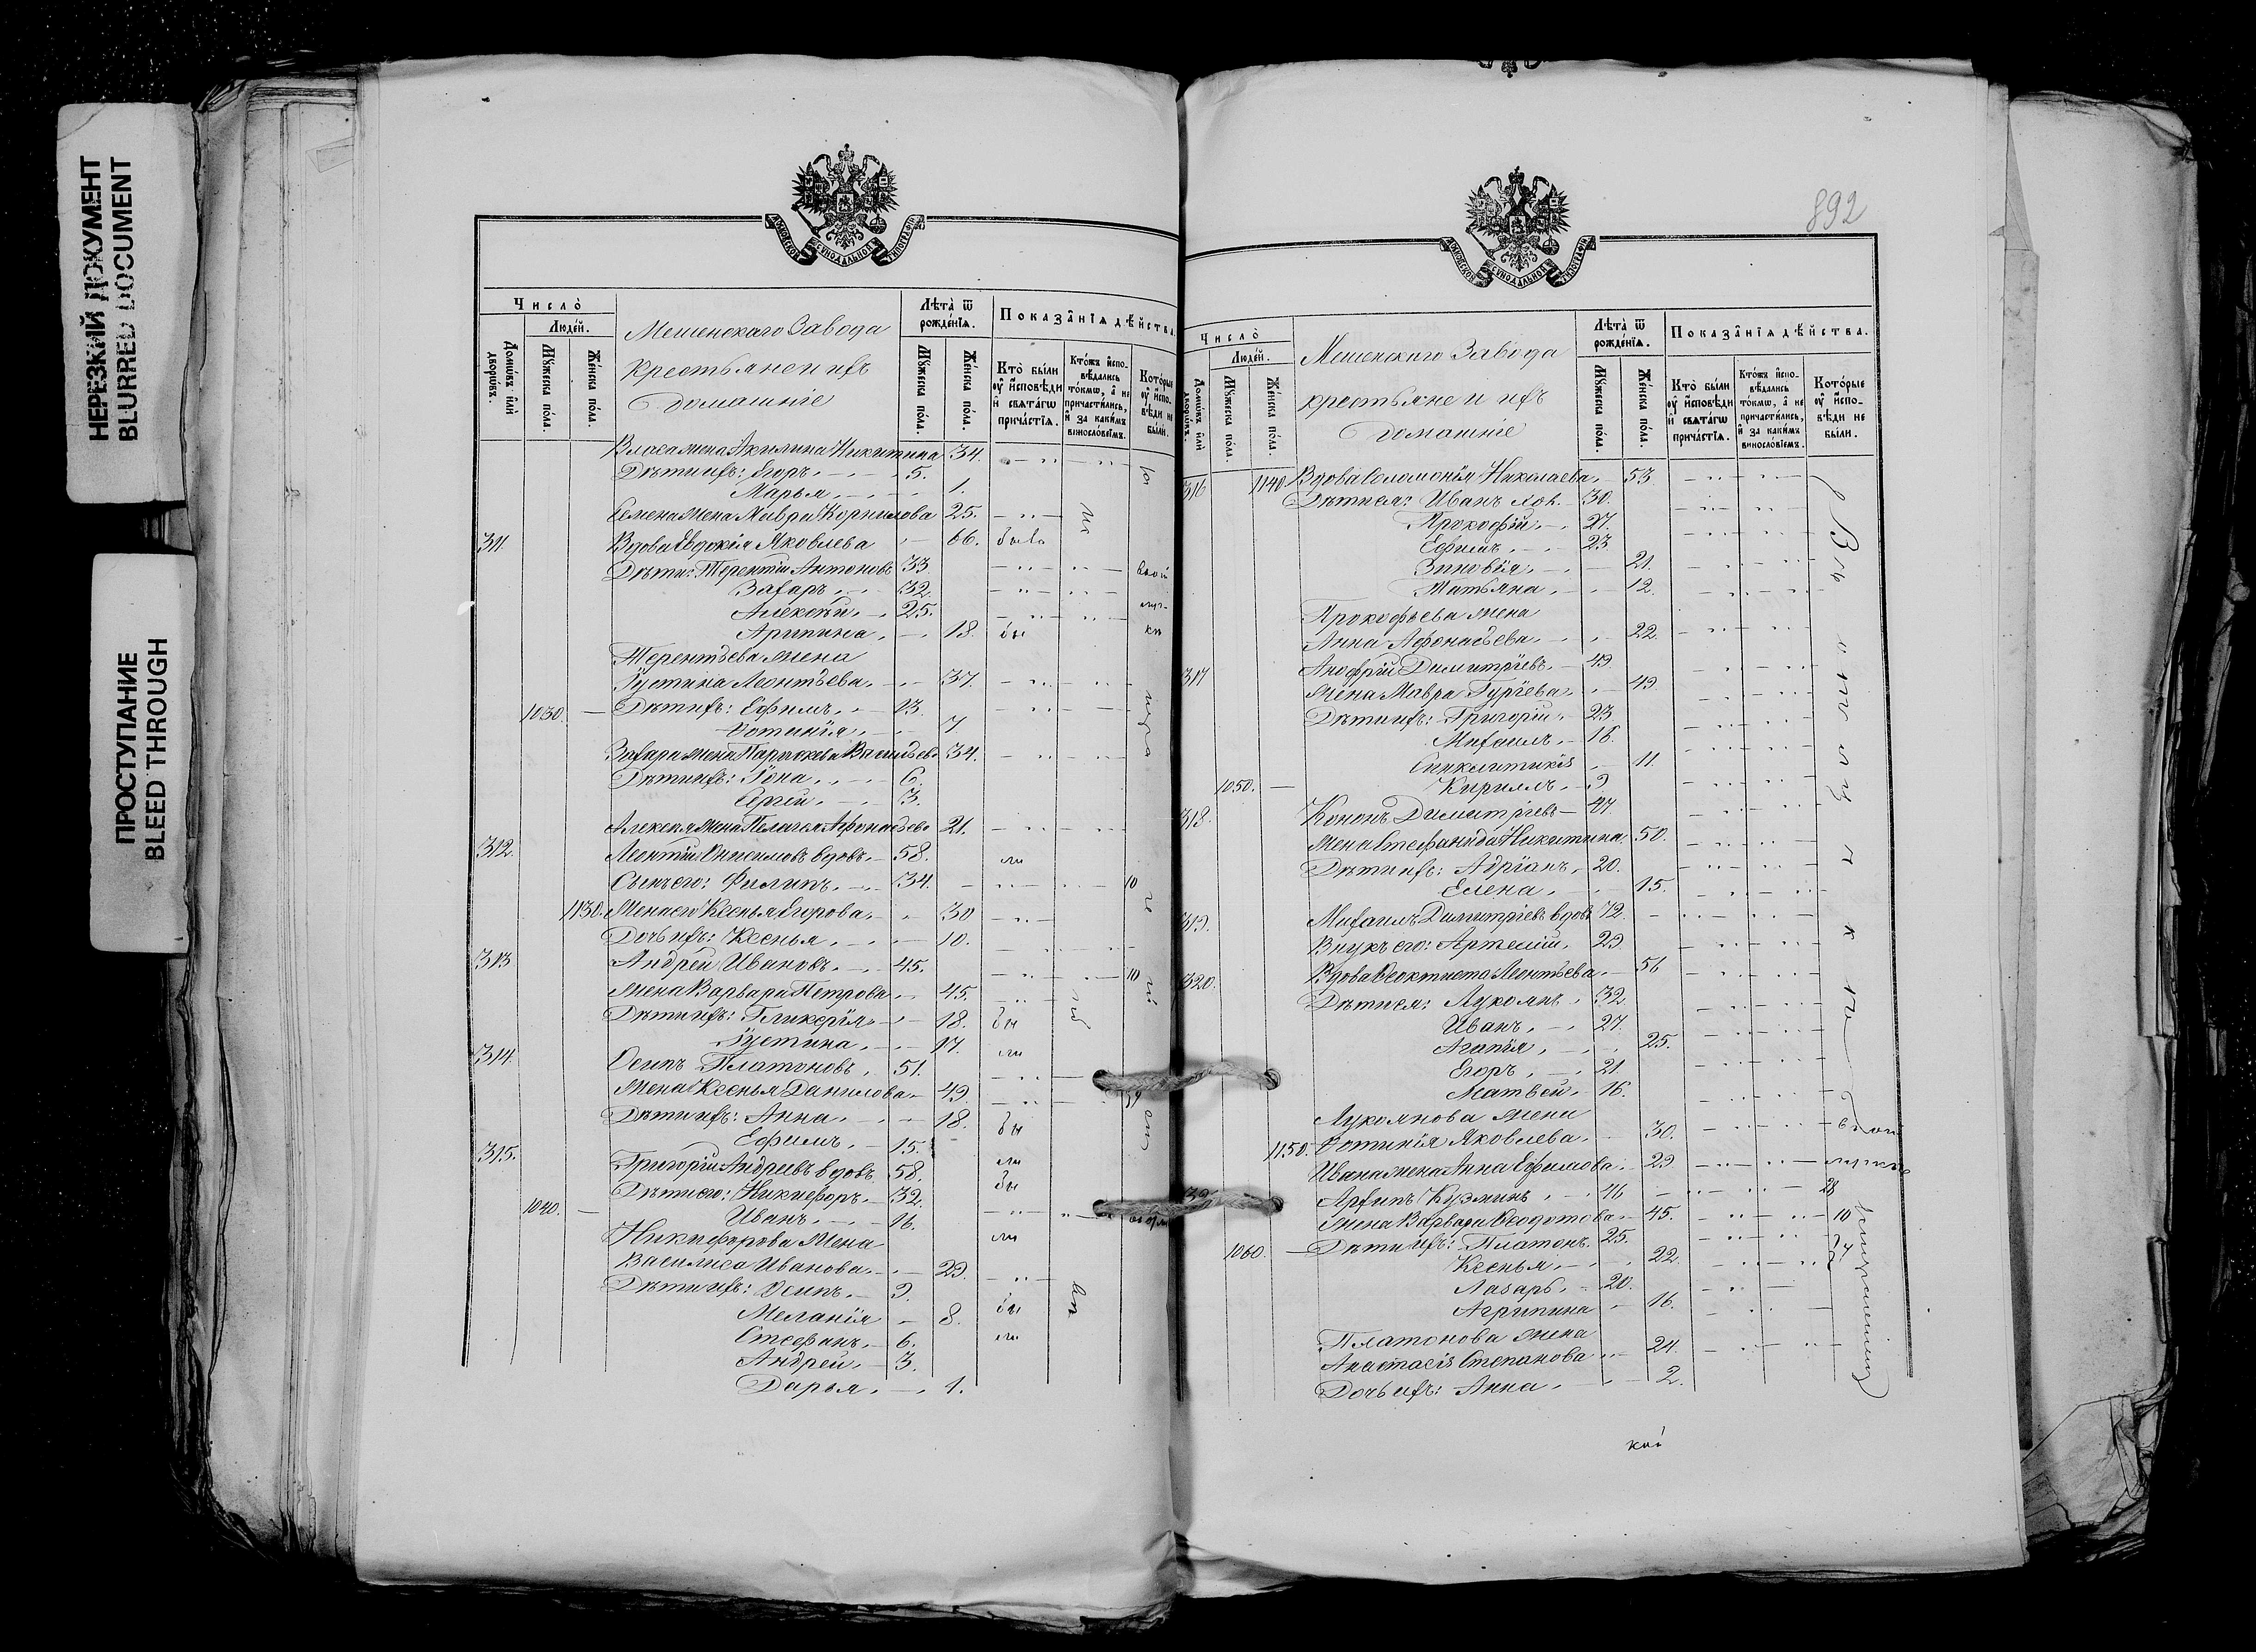 НЕРЕЗКИЙ ДОКУМЕНТ
BLURRED DOCUMENT
ПРОСТУПАНИЕ
BLEED THROUGH
МОСКОВСКОЙ СѴНОДАЛЬНОЙ ТИПОГРАФІИ
Число̀
Людей.
Домѡ́въ и҆лѝ дворѡ́въ.
Мꙋ́жеска по́ла.
Же́нска по́ла.
Мешенскаго Завода
крестьяне и ихъ
домашніе
Лѣта̀ ѿ рожде́нїѧ.
Мꙋ́жеска по́ла.
Же́нска по́ла.
Показа̑нїѧ дѣ́йства.
Кто̀ бы́ли ᲂу҆ и҆сповѣди и҆ свѧта́гѡ прича́стїѧ.
Кто́жъ и҆спо-вѣдались то́кмѡ, а҆ не причасти́лись, и҆ за каки́мъ винословїемъ.
Кото́рые ᲂу҆ и҆спо-вѣди не бы́ли.
Власа жена Акилина Никитина 34.
Дѣти ихъ: Егоръ 5.
Марья 1.
Семена жена Мавра Корнилова 25.
311. Вдова Евдокія Яковлева 66.
Дѣти: Терентій Антоновъ 33
Захаръ 32.
Алексѣй 25.
Агрипина 18.
Терентьева жена
Іустина Леонтьева 37.
1030. Дѣти ихъ: Ефимъ 13.
Фотинія 7
Захара жена Параскева Васильева 34.
Дѣти ихъ: Іона 6.
Сергій 3.
Алексѣя жена Пелагья Афонасьева 21.
312. Леонтій Онисимовъ вдовъ 58.
Сынъ его: Филипъ 34.
1130. Жена его Ксенья Егорова 30
Дочь ихъ: Ксенья 10.
313 Андрей Ивановъ 45.
Жена Варвара Петрова 45.
Дѣти ихъ: Гликерія 18.
Іустина 17.
314 Осипъ Платоновъ 51.
Жена Ксенья Данилова 49.
Дѣти ихъ: Анна 18.
Ефимъ 15.
315. Григорій Андреевъ вдовъ 58.
Дѣти его: Никифоръ 32.
1040. Иванъ 16.
Никифорова жена
Василиса Иванова 29.
Дѣти ихъ: Осипъ 9.
Меланія 8.
Стефанъ 6.
Андрей 3.
Дарья 1.
892
МОСКОВСКОЙ СѴНОДАЛЬНОЙ ТИПОГРАФІИ
Число̀
Людей.
Домѡ́въ и҆лѝ дворѡ́въ.
Мꙋ́жеска по́ла.
Же́нска по́ла.
Мешенскаго Завода
крестьяне и ихъ
домашніе
Лѣта̀ ѿ рожде́нїѧ.
Мꙋ́жеска по́ла.
Же́нска по́ла.
Показа̑нїѧ дѣ́йства.
Кто̀ бы́ли ᲂу҆ и҆сповѣди и҆ свѧта́гѡ прича́стїѧ.
Кто́жъ и҆спо-вѣдались то́кмѡ, а҆ не причасти́лись, и҆ за каки́мъ винословїемъ.
Кото́рые ᲂу҆ и҆спо-вѣди не бы́ли.
316 1140. Вдова Соломонія Николаева 53
Дѣти ея: Иванъ 30.
Прокофій 27.
Ефимъ 23
Зиновія 21.
Татьяна 12.
Прокофьева жена
Анна Афонасьева 22.
317 Анофрій Димитріевъ 49.
Жена Мавра Гурьева 49.
Дѣти ихъ: Григорій 23
Михаилъ 18
Синклитикія 11.
1050. Кириллъ 9
318. Кононъ Димитріевъ 47.
Жена Стефанида Никитина 50.
Дѣти ихъ: Адріанъ 20.
Елена 15.
319. Михаилъ Димитріевъ вдовъ 72.
Внукъ его: Артемій 29
320. Вдова Феоктиста Леонтьева 56
Дѣти ея: Лукоянъ 32
Иванъ 27.
Агапія 25.
Егоръ 21.
Матвей 16.
Лукоянова жена
1150. Фотинія Яковлева 30.
Ивана жена Анна Ефимова 29
Архипъ Кузминъ 46
Жена Варвара Феодотова 45.
1060. Дѣти ихъ: Платонъ 25.
Ксенья 22.
Лазарь 20.
Агрипина 16.
Платонова жена
Анастасія Степанова 24.
Дочь ихъ: Анна 2.